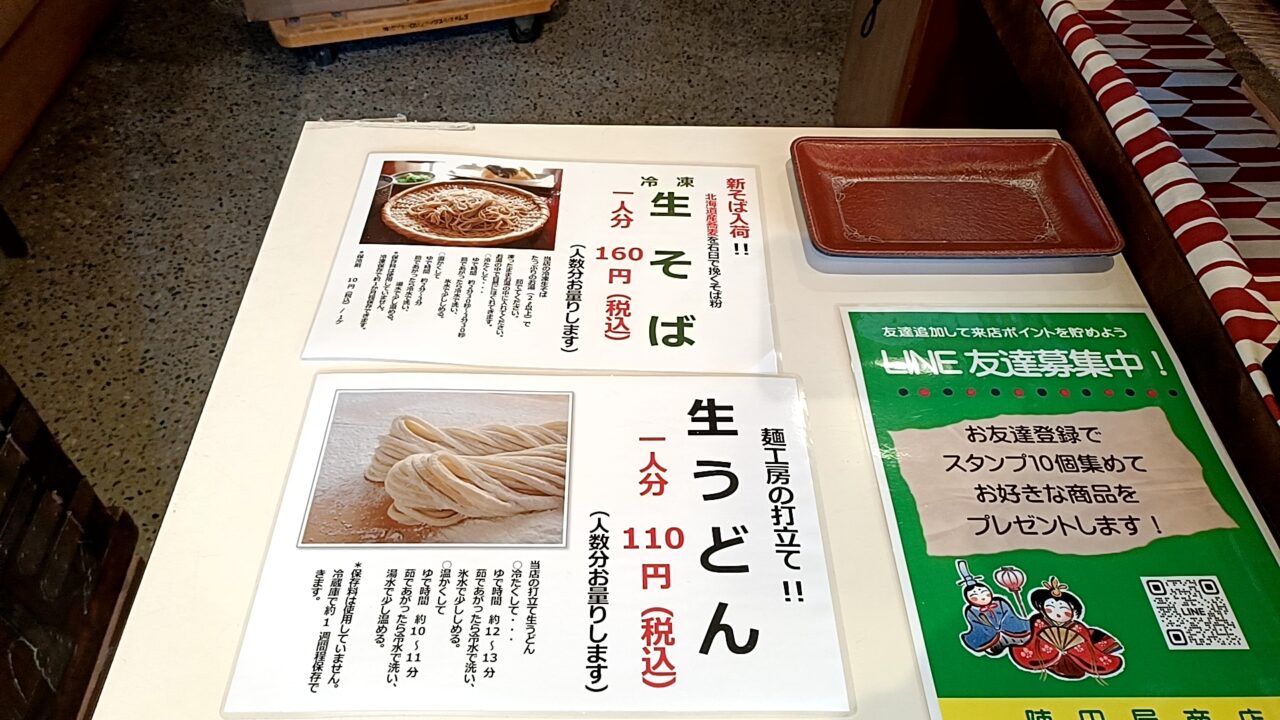 新そば入荷!!
北海道産蕎麦を石臼で挽くそば粉
冷凍
生そば
一人分 160円(税込)
(人数分お量りします)
当店の冷凍生そば
○冷たくして・・・
○温かくして
*保存料は使用していません。
麺工房の打立て!!
生うどん
一人分 110円(税込)
(人数分お量りします)
当店の打立て生うどん
○冷たくして・・・
ゆで時間 約12～13分
茹であがったら冷水で洗い、
氷水で少ししめる。
○温かくして
ゆで時間 約10～11分
茹であがったら冷水で洗い、
湯水で少し温める。
*保存料は使用していません。
冷蔵庫で約1週間程保存で
きます。
友達追加して来店ポイントを貯めよう
LINE友達募集中!
お友達登録で
スタンプ10個集めて
お好きな商品を
プレゼントします!
LINE